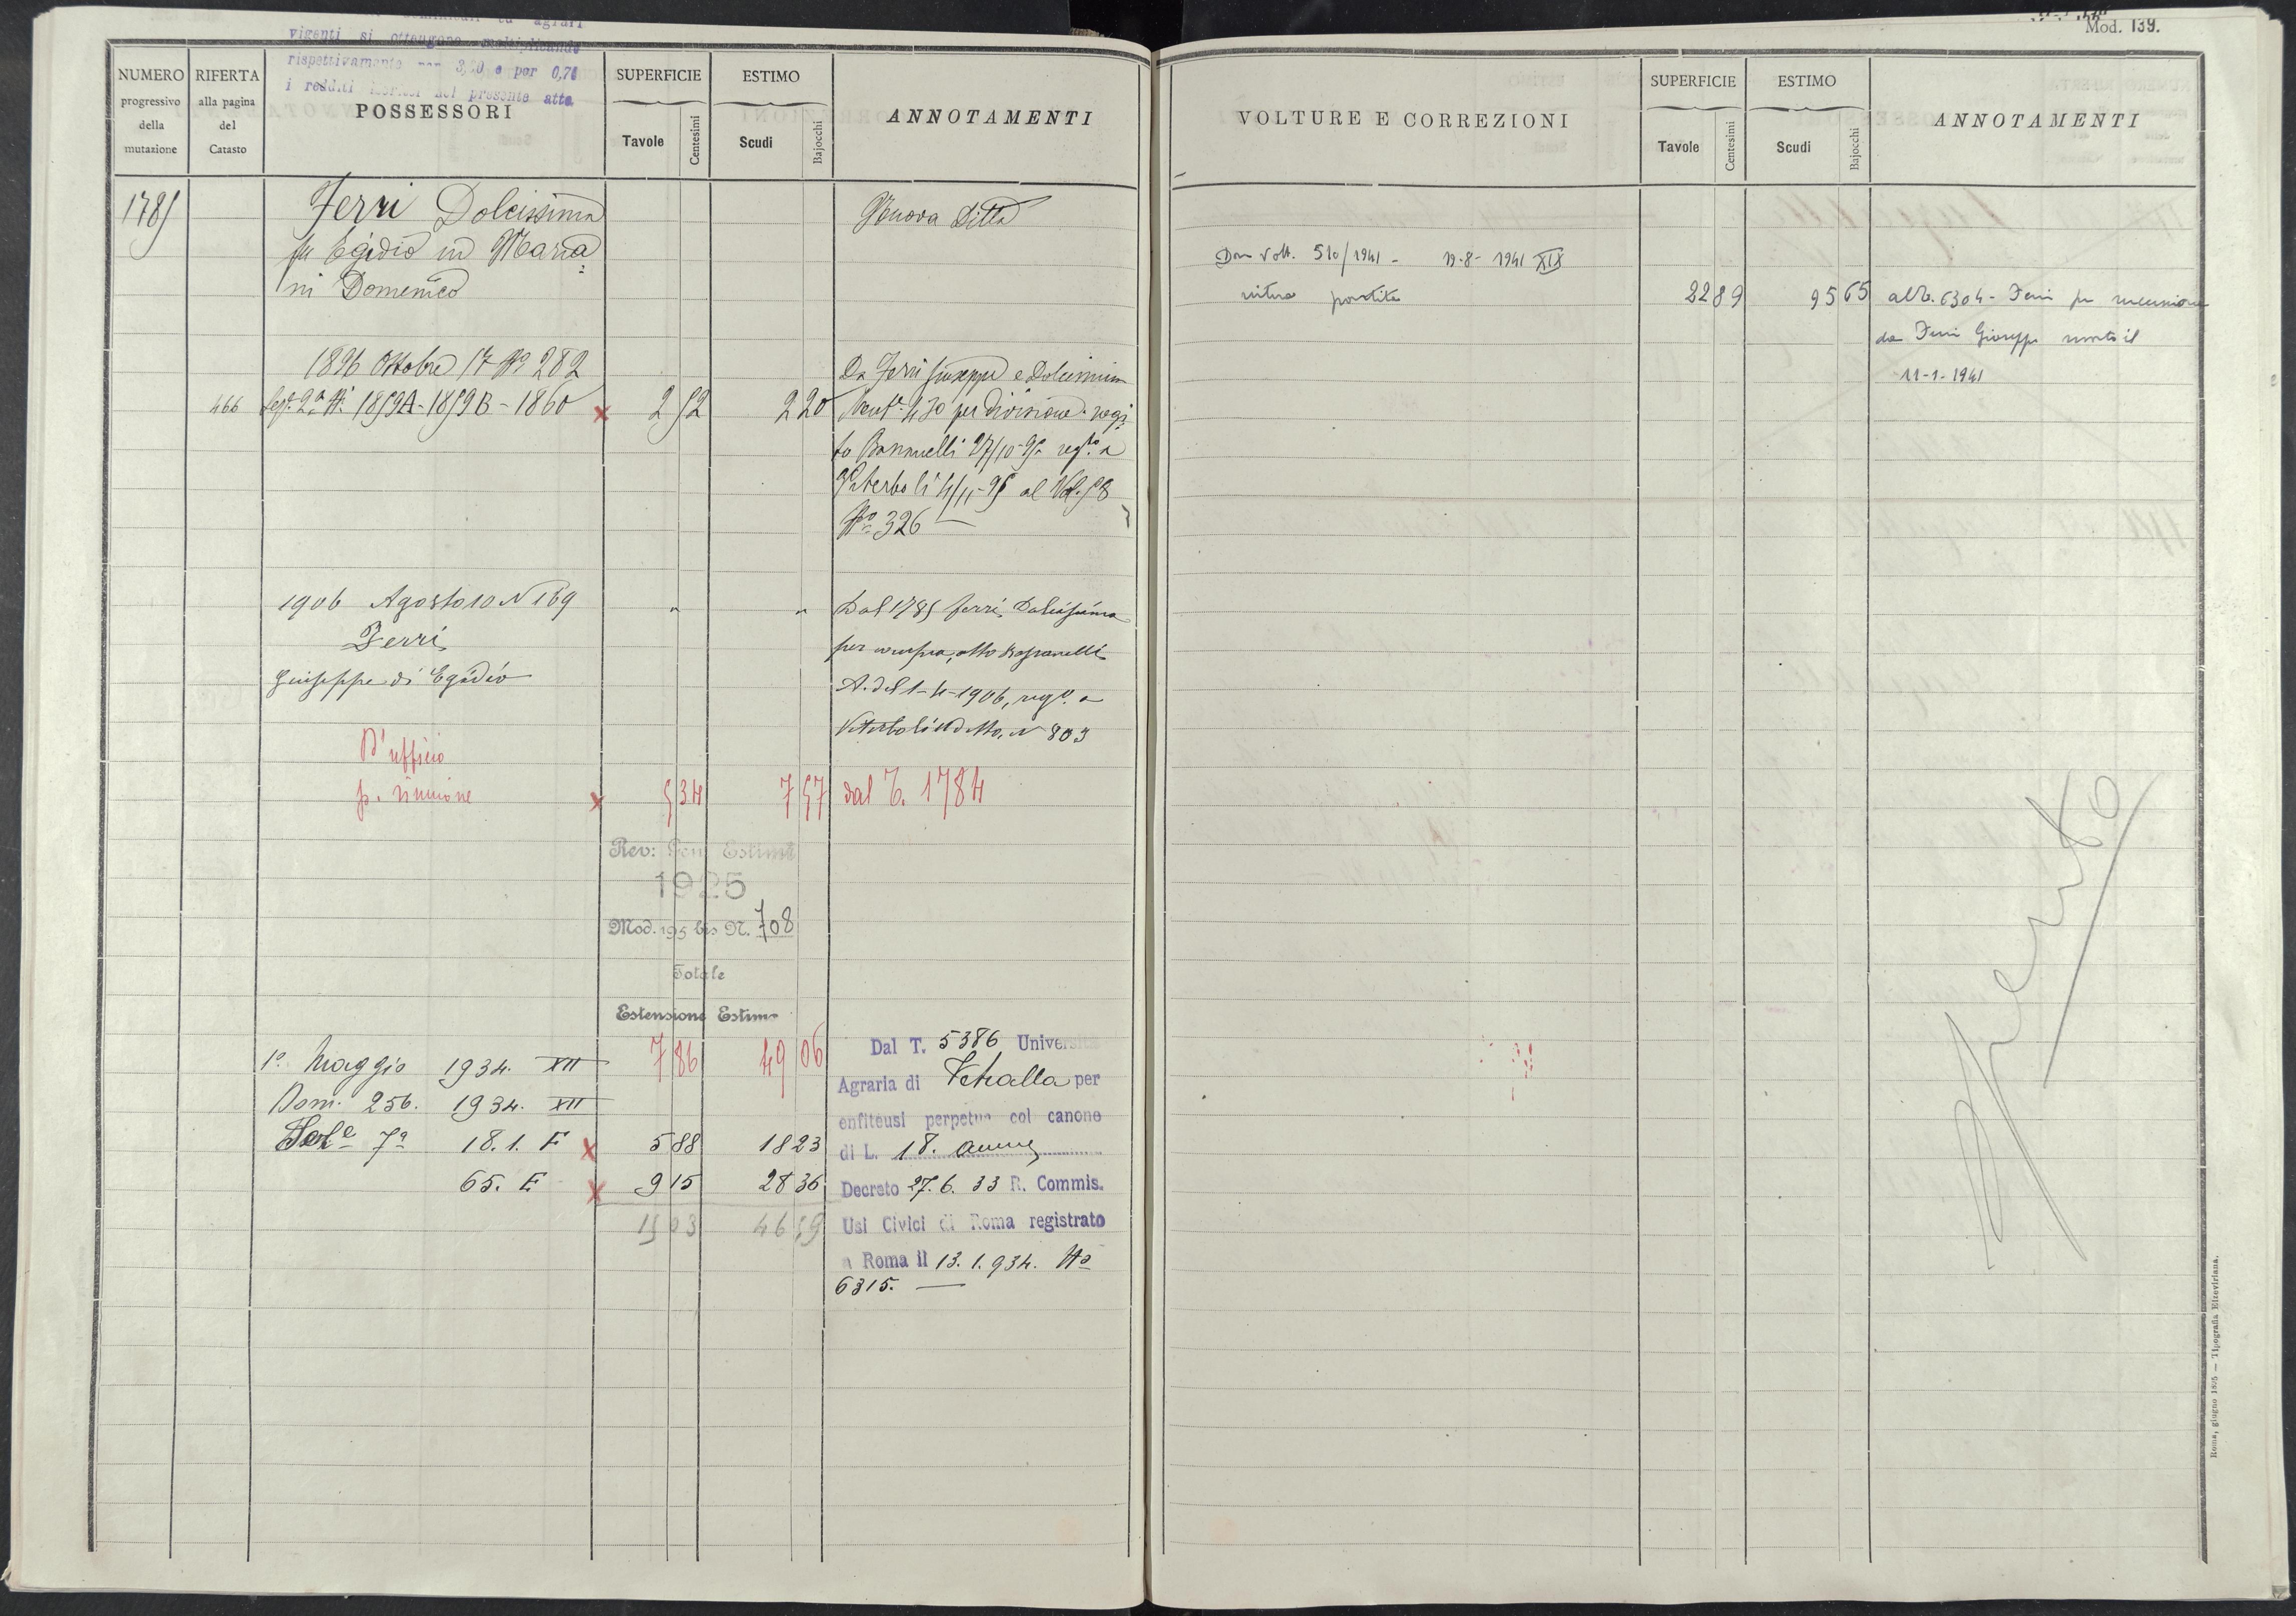 vigenti si ottengono moltiplicando
rispettivamente per 3,20 e per 0,70
i redditi iscritti nel presente atto
NUMERO progressivo della mutazione
RIFERTA alla pagina del Catasto
POSSESSORI
SUPERFICIE
Tavole Centesimi
ESTIMO
Scudi Bajocchi
ANNOTAMENTI
1785 Ferri Dolcissima Nuova Ditta
fu Egidio in Maria=
ni Domenico
1896 Ottobre 17 No 282 Da Ferri Giuseppe e Dolcissima
466 Sez.e 2a Ni 1859A-1859B-1860 x 2 52 2 20 per divisione rogi=
to Bonanelli 27/10-95 reg.to a
Viterbo li 4/11-95 al Vol. 58
No 326 —
1906 Agosto 10 N 169 " " Dal 1785 Ferri Dolcissima
Ferri per compra, atto
Giuseppe di Egidio A. del 1-4-1906, reg.o a
Viterbo li detto, N 803
D'ufficio
p. riunione x 5 34 7 57 dal T. 1784
Rev: Gen. Estimi
1925
Mod. 195 bis N. 708
Totale
Estensione Estimo
1o Maggio 1934. XII 7 86 49 06 Dal T. 5386 Università
Dom. 256. 1934. XII Agraria di Vetralla per
enfiteusi perpetua col canone
Sez.e 7a 18.1. F x 5 88 18 23 di L. 18. annue
65. E x 9 15 28 36 Decreto 27.6.33 R. Commis.
15 03 46 59 Usi Civici di Roma registrato
a Roma il 13.1.934. No
6315. —
Mod. 139.
VOLTURE E CORREZIONI
SUPERFICIE
Tavole Centesimi
ESTIMO
Scudi Bajocchi
ANNOTAMENTI
Dom Volt. 510/1941 - 19-8-1941 XIX
intera partita 22 89 95 65 al T. 6304 - Ferri per successione
da Ferri Giuseppe morto il
11-1-1941
Spento
Roma, giugno 1895 — Tipografia Elzeviriana.